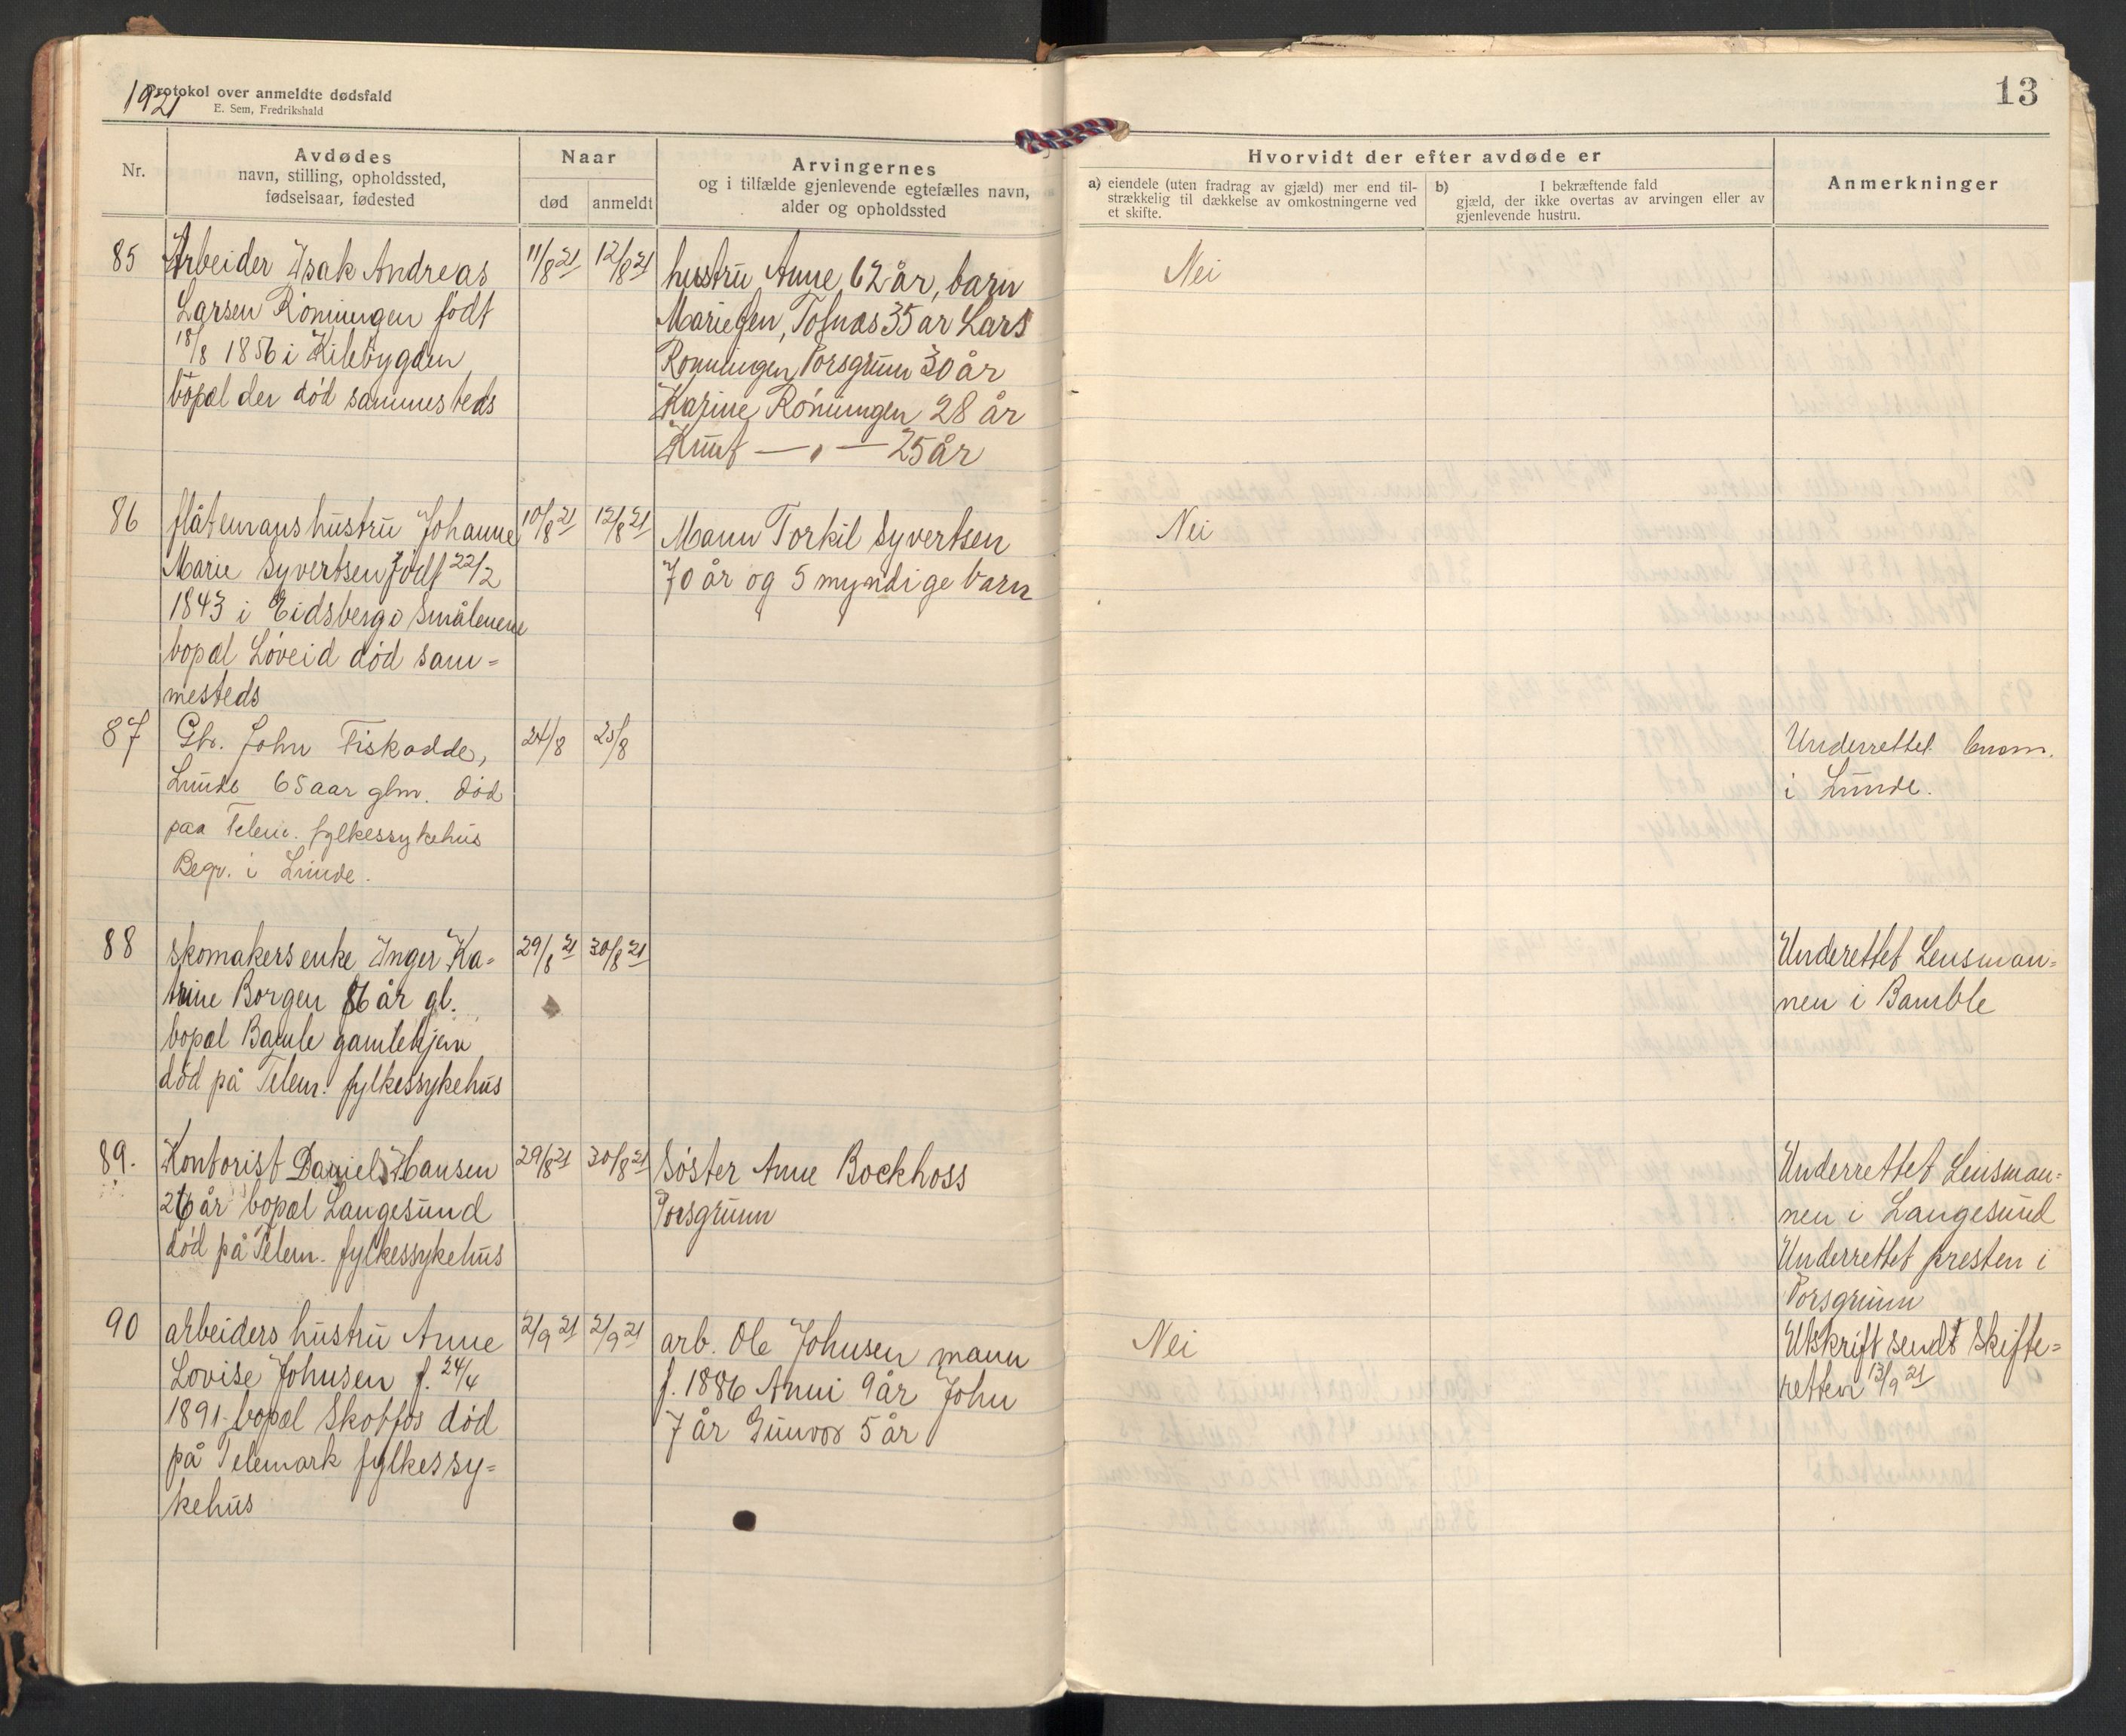 1921
Protokol over anmeldte dødsfald
E. Sem, Fredrikshald
13
Nr.
Avdødes
navn, stilling, opholdssted,
fødselsaar, fødested
Naar
død
anmeldt
Arvingernes
og i tilfælde gjenlevende egtefælles navn,
alder og opholdssted
Hvorvidt der efter avdøde er
a) eiendele (uten fradrag av gjæld) mer end til-
strækkelig til dækkelse av omkostningerne ved
et skifte.
b) I bekræftende fald
gjæld, der ikke overtas av arvingen eller av
gjenlevende hustru.
Anmerkninger
85
Arbeider Isak Andreas
Larsen Röningen født
18/8 1856 i Kilebygden
bopæl der død sammesteds
11/8 21
12/8 21
hustru Anne 62 år, barn
35 år Lars
Rönningen Porsgrunn 30 år
Karine Röningen 28 år
Knut —„— 25 år
Nei
86
flåtemans hustru Johanne
Marie Syvertsen født 22/2
1843 i Eidsberg Smålenene
bopæl Løveid død sam=
mesteds
10/8 21
12/8 21
Mann Torkil Syvertsen
70 år og 5 myndige barn
Nei
87
Gbr. John Fiskodde,
Lunde 65 aar glm. død
paa Telem. fylkessykehus
Begr. i Lunde.
24/8
25/8
Underrettet
i Lunde.
88
skomakers enke Inger Ka=
trine Borgen 86 år gl.
bopæl Bamle gamlehjem
död på Telem. fylkessykehus
29/8 21
30/8 21
Underettet Lensman=
nen i Bamble
89.
Kontorist Daniel Hansen
26 år bopæl Langesund
död på Telem. fylkessykehus
29/8 21
30/8 21
Søster Anne Bockhoss
Porsgrunn
Underrettet Lensman=
nen i Langesund
Underrettet presten i
Porsgrunn
90
arbeiders hustru Anne
Lovise Johnsen f. 24/4
1891 bopæl Skotfos død
på Telemark fylkessy=
kehus
2/9 21
2/9 21
arb. Ole Johnsen mann
f. 1886 Anni 9 år John
7 år Gunvor 5 år
Nei
Utskrift sendt Skifte=
retten 13/9 21